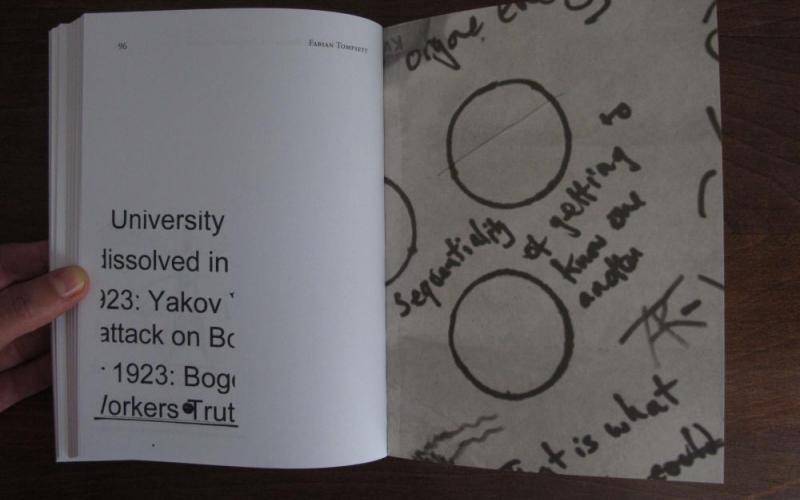 96
FABIAN TOMPSETT
University
dissolved in
923: Yakov
attack on Bo
1923: Bog
Workers Trut
orgone energy
Sequentiality
of getting to
know one
another
is what
could